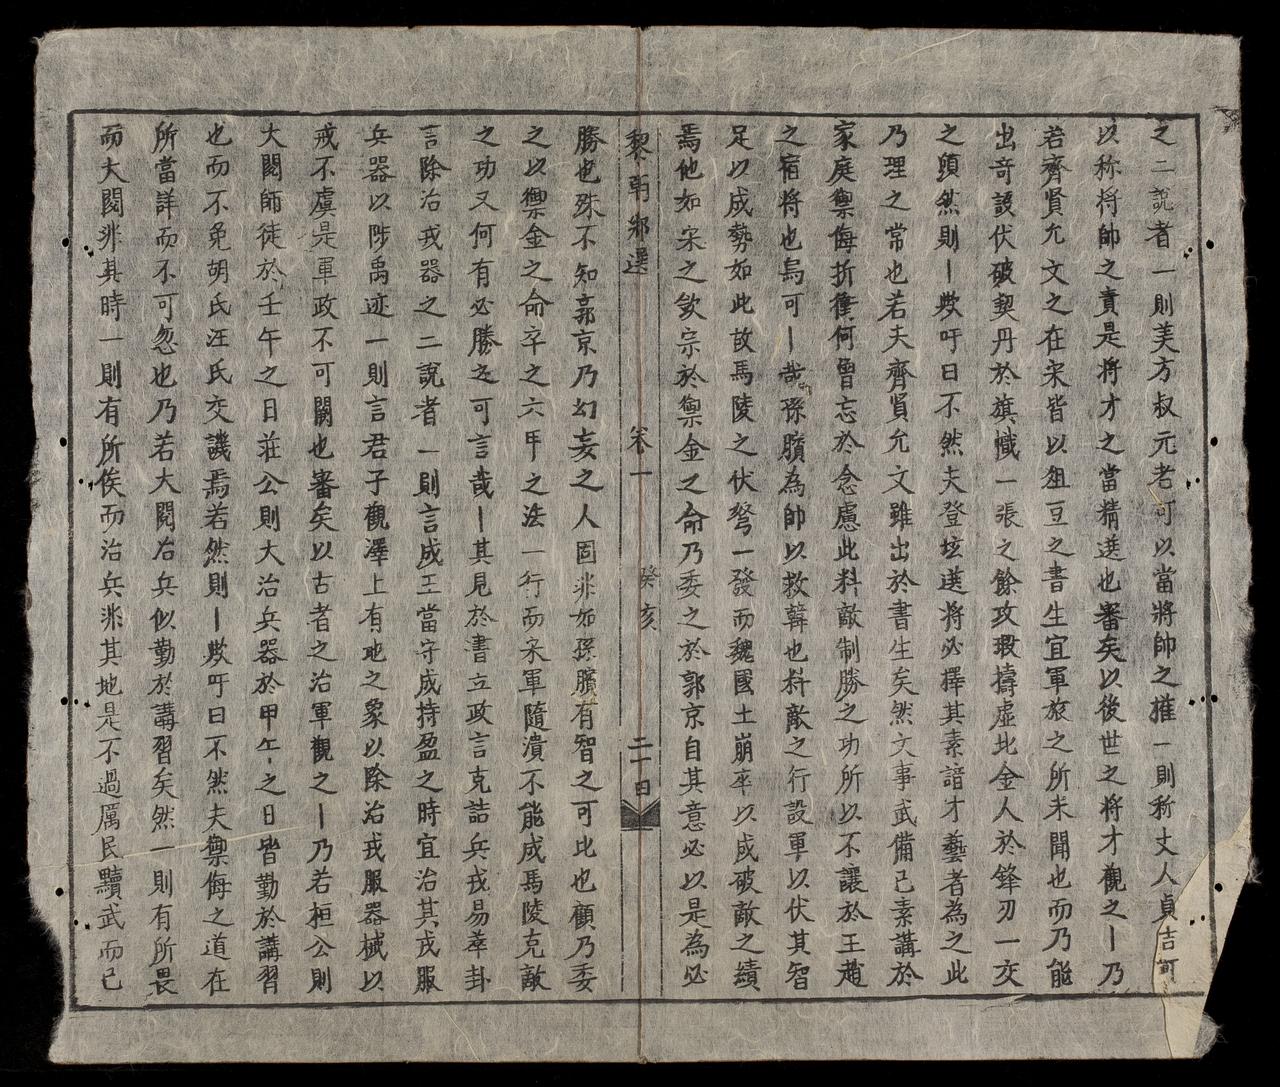 之二説者一則美方叔元老可以當將帥之推一則称丈人貞吉可
以称將帥之責是將才之當精選也審矣以後世之將才觀之丨乃
若齊賢允文之在宋皆以爼豆之書生宜軍旅之所未聞也而乃能
出奇設伏破契丹於旗幟一張之餘攻瑕擣虛北金人於鋒刃一交
之頭然則丨欺吁曰不然夫登坛選將必擇其素諳才藝者為之此
乃理之常也若夫齊賢允文雖出於書生矣然文事武備已素講於
家庭禦侮折衝何曾忘於念慮此料敵制勝之功所以不讓於王趙
之宿將也烏可丨哉孫臏為帥以救韓也料敵之行設軍以伏其智
足以成勢如此故馬陵之伏弩一發而魏國土崩卒以成破敵之績
焉他如宋之欽宗於禦金之命乃委之於郭京自其意必以是為必
黎朝鄉選 卷一 癸亥 二十四
勝也殊不知郭京乃幻妄之人固非如孫臏有智之可比也顧乃委
之以禦金之命卒之六甲之法一行而宋軍隨潰不能成馬陵克敵
之功又何有必勝之可言哉丨其見於書立政言克詰兵戎易萃卦
言除治戎器之二說者一則言成王當守成持盈之時宜治其戎服
兵器以陟禹迹一則言君子觀澤上有地之象以除治戎服器械以
戒不虞是軍政不可闕也審矣以古者之治軍觀之丨乃若桓公則
大閱師徒於壬午之日莊公則大治兵器於甲午之日皆勤於講習
也而不免胡氏汪氏交譏焉若然則丨欺吁曰不然夫禦侮之道在
所當詳而不可忽也乃若大閱治兵似勤於講習矣然一則有所畏
而大閱非其時一則有所俟而治兵非其地是不過厲民黷武而已